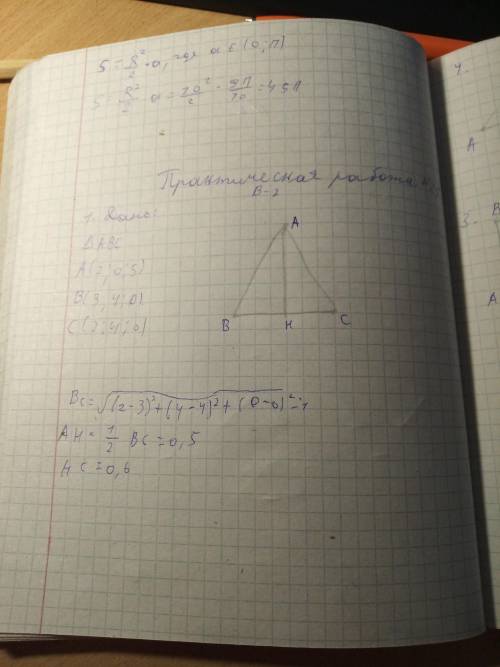 S = R²/2 · α, где α ∈ (0; π)
S = R²/2 · α = 20²/2 · 9π/10 = 45π
Практическая работа
В-2
1. Дано:
ΔABC
A(2; 0; 5)
B(3; 4; 0)
C(2; 4; 0)
A
B
H
C
BC = √(2-3)²+(4-4)²+(0-0)² = 1
AH = 1/2 BC = 0,5
HC = 0,6
4.
A
3.
B
A